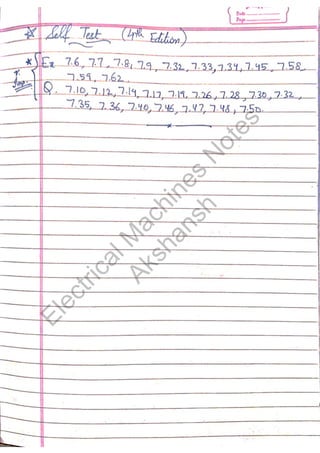 Date
Page
* Self Test (4th Edition)
* Ex 7.6, 7.7, 7.8, 7.9, 7.32, 7.33, 7.34, 7.45, 7.58
7.59, 7.62.
Imp. Q. 7.10, 7.12, 7.14, 7.17, 7.19, 7.26, 7.28, 7.30, 7.32,
7.35, 7.36, 7.40, 7.46, 7.47, 7.48, 7.50.
Electrical Machines Notes
Akshansh